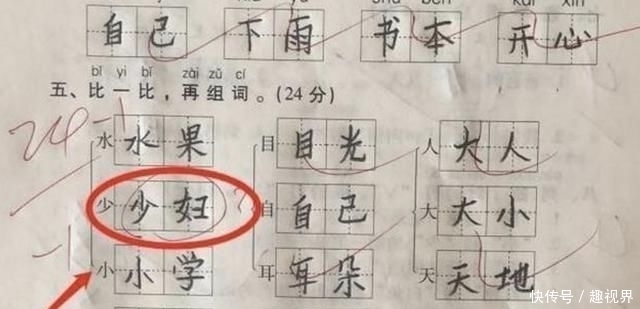 自己 下雨 书本 开心
bǐ yi bǐ zài zǔ cí
五、比一比，再组词。(24分)
24 -1
水 水果 目 目光 人 大人
少 少妇 ? 自 自己 大 大小
-1
小 小学 耳 耳朵 天 天地
快传号/趣视界